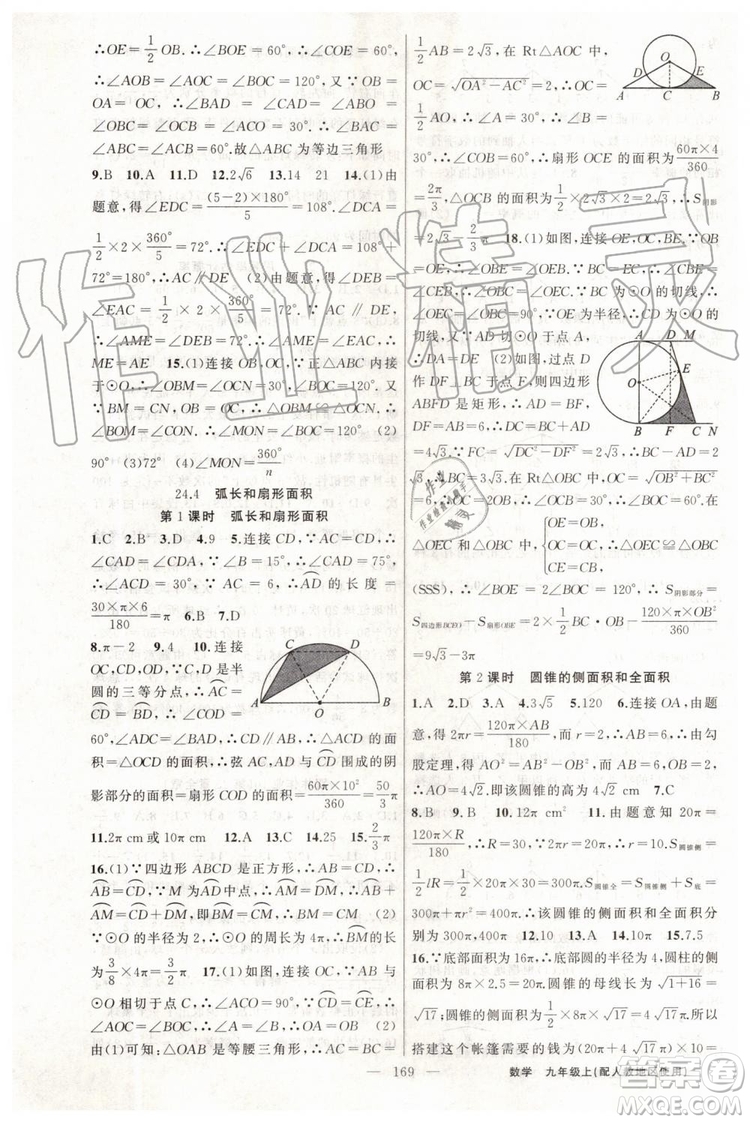 ∴OE=1/2 OB.∴∠BOE=60°,∴∠COE=60°,
∴∠AOB=∠AOC=∠BOC=120°,又∵OB=
OA=OC,∴∠BAD=∠CAD=∠ABO=
∠OBC=∠OCB=∠OCA=30°.∴∠BAC=
∠ABC=∠ACB=60°.故△ABC为等边三角形
9.B 10.A 11.D 12.2√6 13.14 21 14.(1)由
题意,得∠EDC=(5-2)×180°/5=108°.∠DCA=
1/2×2×360°/5=72°.∴∠EDC+∠DCA=108°+
72°=180°,∴AC∥DE (2)由题意,得∠DEB=
∠EAC=1/2×2×360°/5=72°.又∵AC∥DE,
∴∠AME=∠DEB=72°,∴∠AME=∠EAC,∴
ME=AE 15.(1)连接OB,OC,∵正△ABC内接
于⊙O,∴∠OBM=∠OCN=30°,∠BOC=120°.又
∵BM=CN,OB=OC,∴△OBM≌△OCN,∴
∠BOM=∠CON,∴∠MON=∠BOC=120° (2)
90° (3)72° (4)∠MON=360°/n
24.4 弧长和扇形面积
第1课时 弧长和扇形面积
1.C 2.B 3.D 4.9 5.连接CD,∵AC=CD,∴
∠CDA=∠A,∵∠B=15°,∴∠CDA=∠A=
75°,∴∠ACD=30°,∵AC=6,∴AD的长度=
30×π×6/180=π 6.B 7.D
8.π-2 9.C 10.连接
OC,CD,OD,∵C,D是半
圆的三等分点,∴AC=
CD,∴∠AOC=∠COD=
60°,∠ABO=∠BAD,∴CD∥AB,∴△ACD的面
积=△OCD的面积,∴弦AC,AD与CD围成的阴
影部分的面积=扇形COD的面积=60π×10²/360=50/3π
11.2π cm或10π cm 12.A 13.C 14.25 15.2/3π
16.(1)∵四边形ABCD是正方形,∴AB=CD,∴
AB=CD.∵M为AD中点,∴AM=DM,∴
AB+AM=CD+DM,即BM=CM,∴BM=CM (2)
∵⊙O的半径为2,∴⊙O的周长为4π,∴BM的长=
3/8×4π=3/2π 17.(1)如图,连接OB,∵AB切⊙O
于C,∴∠ACO=∠BCO=90°,∵CD=CE,∴
∠AOC=∠BOC,∴∠A=∠B,∴OA=OB (2)
由(1)可知:△OAB是等腰三角形,∴BC=AC=
1/2AB=2√3,在Rt△AOC中,
OC=√(OA²-AC²)=2,∴OC=
1/2AO,∴∠A=30°,∴∠B=30°,
∴∠COB=60°,∴扇形OCE的面积=60π×4/360
=2π/3,△OCB的面积为:1/2×2√3×2=2√3,∴S阴影
=2√3-2/3π 18.(1)如图,连接OE,OC,∵OB=
OE,∴∠OBE=∠OEB,∵BC=EC,∴∠CBE=
∠CEB,∴∠OBC=∠OEC.∵BC为⊙O的切线,
∴∠OEC=∠OBC=90°,∵OE为半径,∴CD为⊙O的
切线,∵AD切⊙O于点A,
∴DA=DE (2)如图,过点D
作DF⊥BC于点F,则四边形
ABFD是矩形,∴AD=BF,
DF=AB=6,∴DC=BC+AD
=4√3.∵FC=√(DC²-DF²)=2√3,∴BC-AD=
2√3,∴BC=3√3.在
△OEC和△OBC中,{OE=OB, OC=OC, CE=CB,∴△OEC≌△OBC
(SSS),∴∠BOE=2∠BOC=120°,∴S阴影部分=
S四边形BCEO-S扇形OBE=2×1/2 BC·OB-120×π×OB²/360
=9√3-3π
第2课时 圆锥的侧面积和全面积
1.A 2.D 3.A 4.3√5 5.120 6.连接OA,由题
意,得BO=2.∵2πr=120π×AB/180,∴AB=6,由勾
股定理,得AO=4√2,所以该圆锥的高为4√2 cm 7.C
8.B 9.B 10.A 11.由题意知20π=
120π×R/180,∴R=30,∵2πr=20π,∴r=10,∴S圆锥侧=
1/2lR=1/2×20π×30=300π,∴S圆锥全=S圆锥侧+S底=
300π+100π=400π,∴该圆锥的侧面积和全面积分
别为300π,400π 12.10 13.A 14.A 15.7.5
16.∵底部面积为16π,∴底面圆的半径为4,圆柱的
侧面积为8π×2.5=20π.圆锥的母线长为√(1+16)=
√17;圆锥的侧面积为1/2×8π×√17=4√17π,所以
搭建这个帐篷的面积需要(20π+4√17π)平方米
169
数学 九年级上(配人教地区使用)
作业精灵